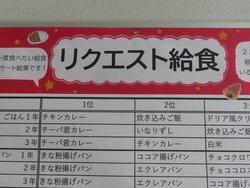 一度食べたい給食
ケート結果です！
リクエスト給食
1位 2位
ごはん 1年 チキンカレー 炊き込みご飯 ドリア風クリ
2年 チーバ君カレー いなりずし チキンカレー
3年 チーバ君カレー チキンカレー 白米
パン 1年 きな粉揚げパン ココア揚げパン チョコクロ
2年 きな粉揚げパン エクレアパン チョコ
3年 きな粉揚げパン エクレアパン ココア